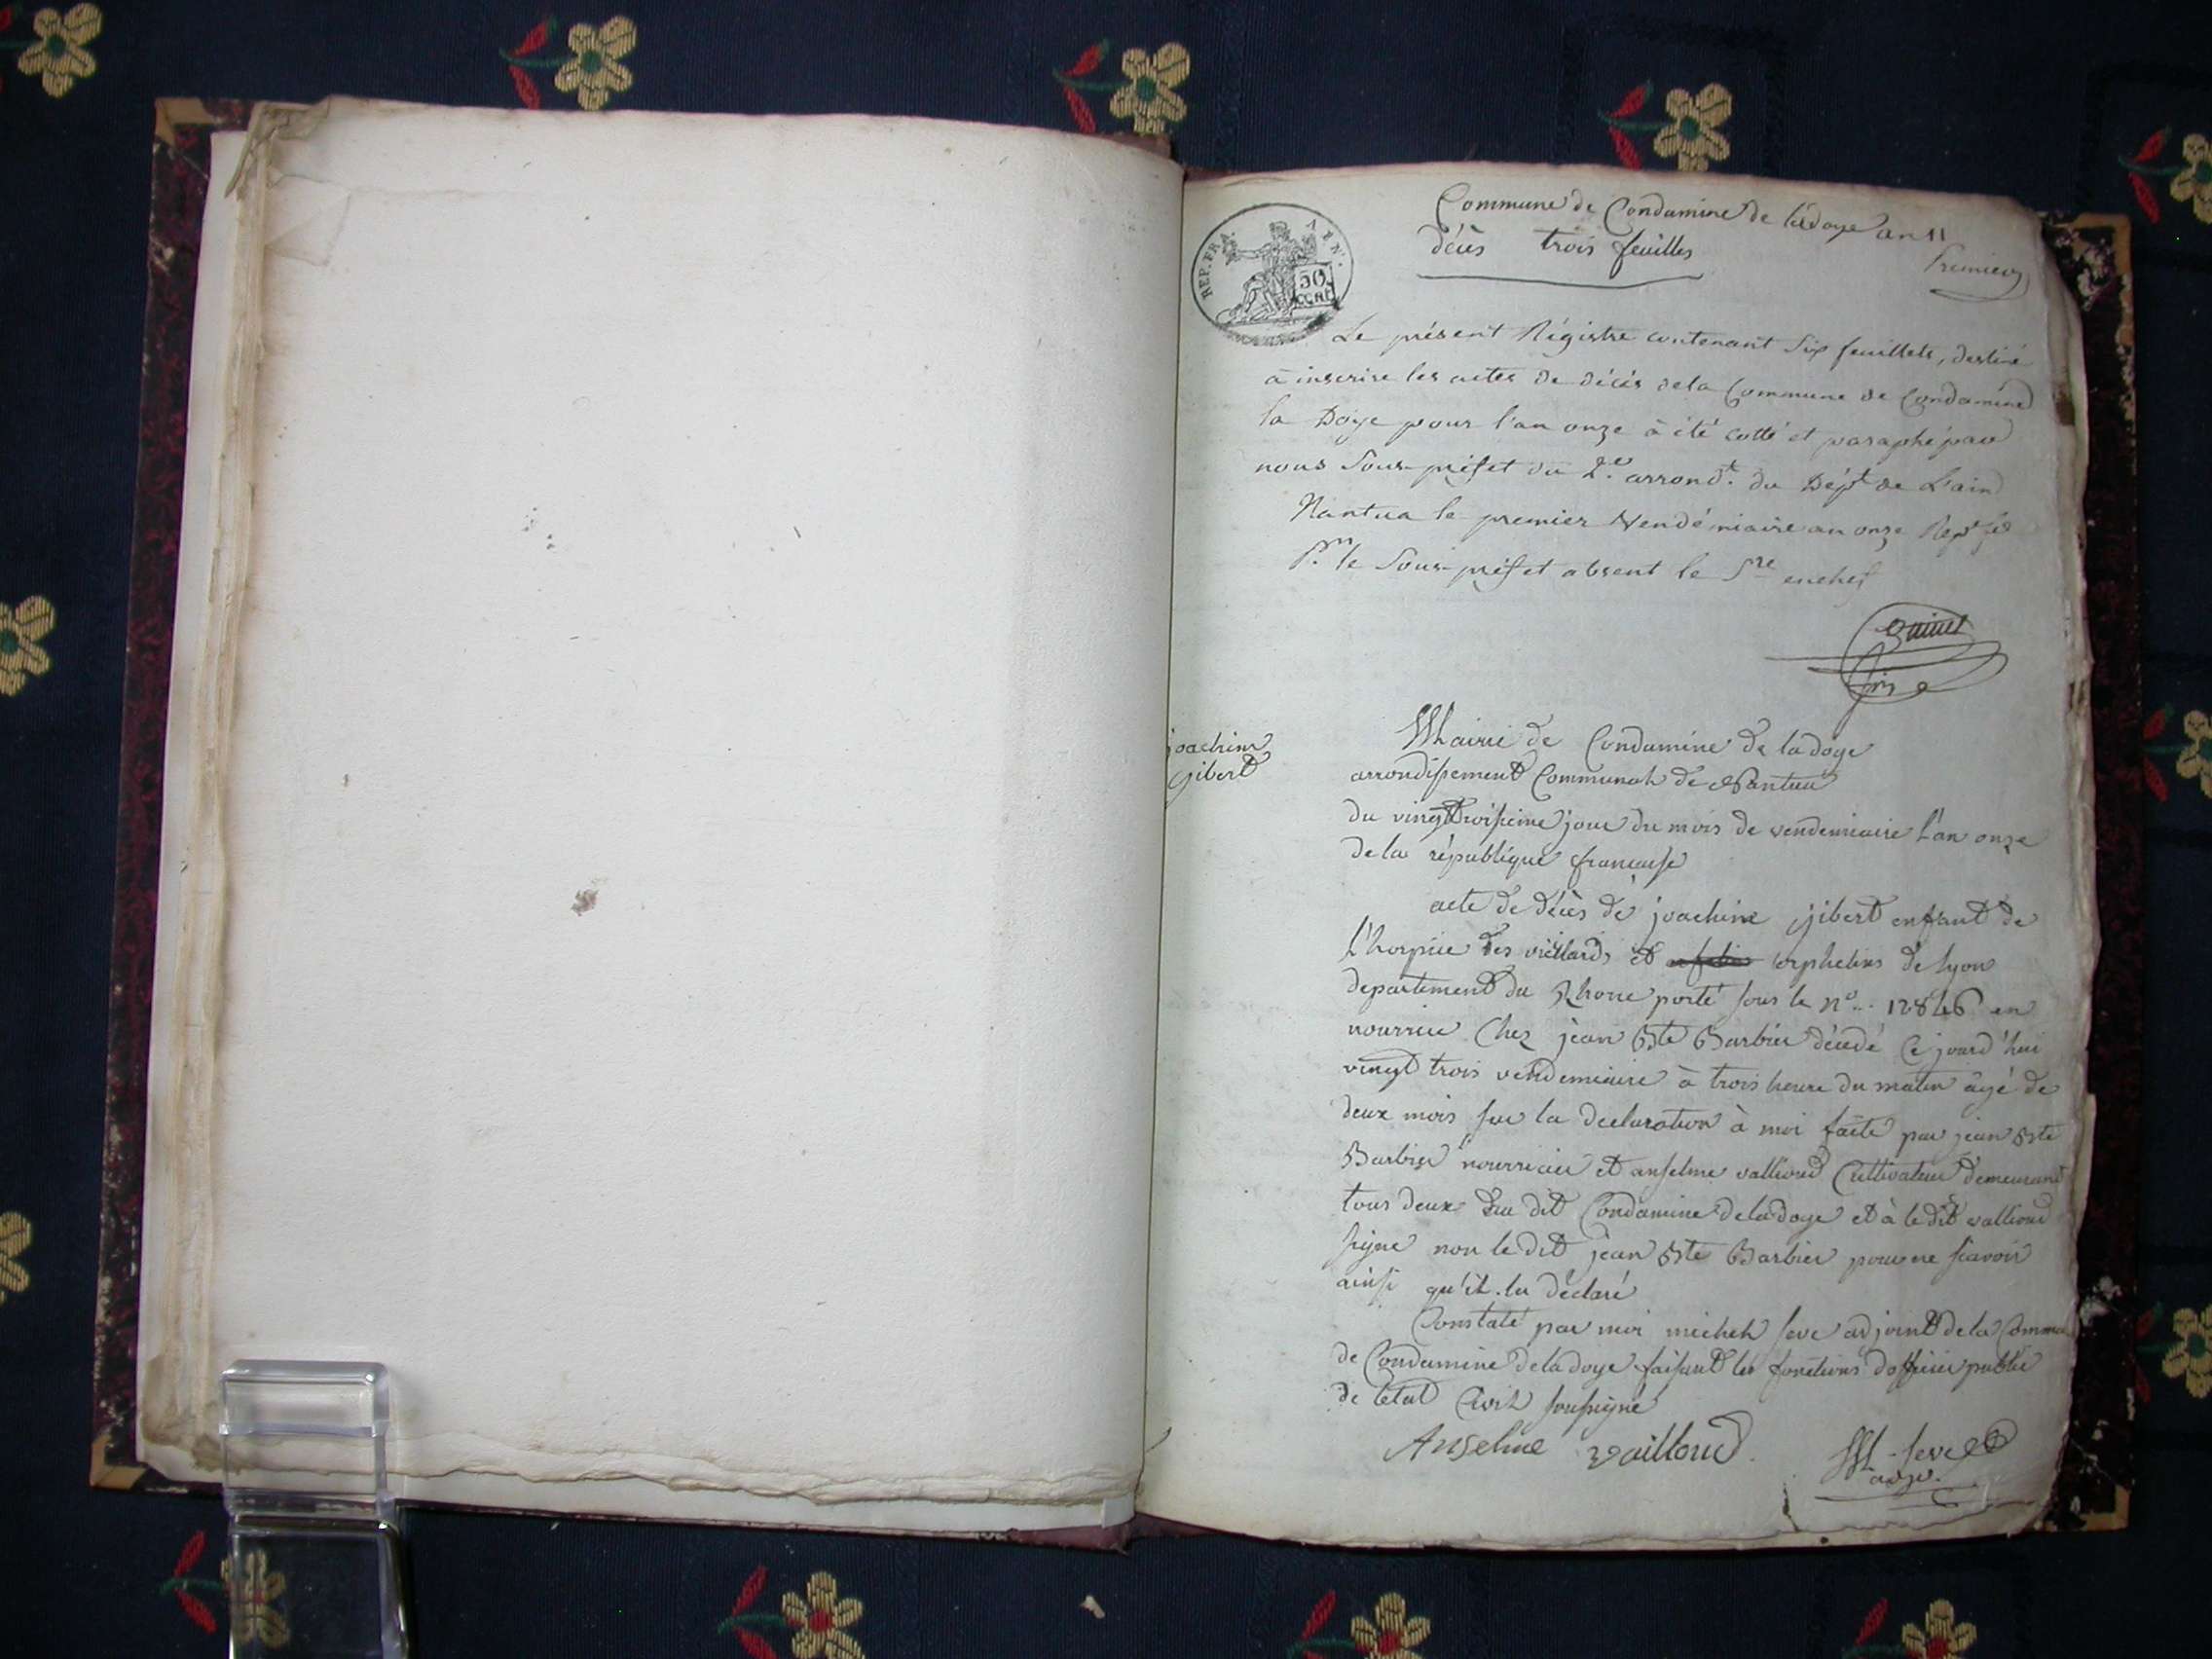 Commune de Condamine de ladoye an 11
décès trois feuilles
Premier
REP. FRA.
50
CENT
Le présent Régistre contenant Six feuillets, destiné
à inscrire les actes de décès dela Commune de Condamine
la Doye pour l'an onze à été cotté et paraphé par
nous Sous-préfet du 2.e arrond.t du Dép.t de L'ain
Nantua le premier Vendémiaire an onze
P.r le Sous-préfet absent le S.re enchef
joachim
gibert
Mairie de Condamine de ladoye
arrondissement Communal de Nantua
du vingt troisieme jour du mois de vendemiaire l'an onze
dela république francaise
acte de décès de joachim gibert enfant de
l'hospice des vieillards et orphelins de lyon
departement du Rhone porté sous le n.o 12846 en
nourrice Chez jean Bte Barbier décédé Cejourd'hui
vingt trois vendemiaire à trois heure du matin âgé de
deux mois sur la declaration à moi faite par jean Bte
Barbier nourricier et anselme vallioud Cultivateur demeurant
tous deux au dit Condamine deladoye et à ledit vallioud
signe non ledit jean Bte Barbier pour ne scavoir
ainsi qu'il la déclaré
Constaté par moi michel seve adjoint dela Commune
de Condamine deladoye faisant les fonctions dofficier public
de letat Civil soussigné
Anselme Vailloud
M. seve
adj.